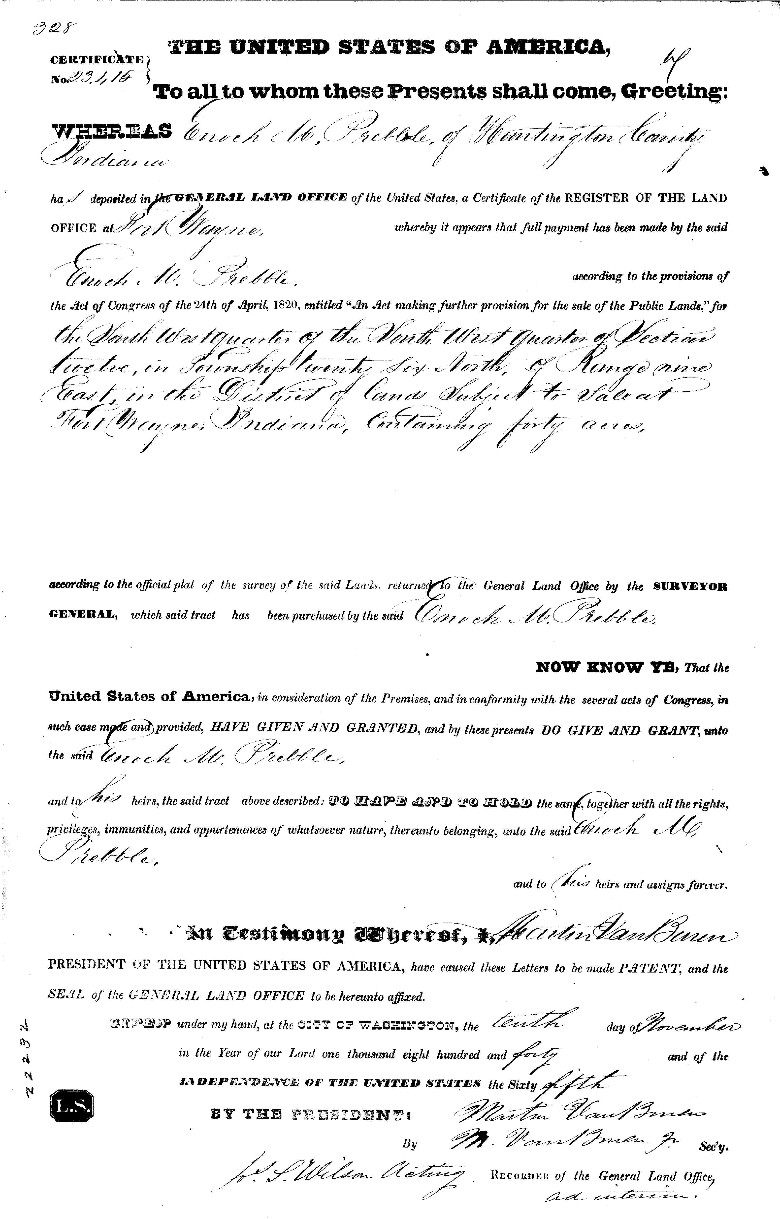 328
THE UNITED STATES OF AMERICA,
CERTIFICATE
No. 23,415
To all to whom these Presents shall come, Greeting:
WHEREAS Enoch M. Prebble, of Huntington County
Indiana
ha s deposited in the GENERAL LAND OFFICE of the United States, a Certificate of the REGISTER OF THE LAND
OFFICE at Fort Wayne, whereby it appears that full payment has been made by the said
Enoch M. Prebble. according to the provisions of
the Act of Congress of the 24th of April, 1820, entitled "An Act making further provision for the sale of the Public Lands," for
the South West quarter of the North West quarter of Section
twelve, in Township twenty six North, of Range nine
East, in the District of Lands Subject to Sale at
Fort Wayne, Indiana, Containing forty acres,
according to the official plat of the survey of the said Lands, returned to the General Land Office by the SURVEYOR
GENERAL, which said tract has been purchased by the said Enoch M. Prebble.
NOW KNOW YE, That the
United States of America, in consideration of the Premises, and in conformity with the several acts of Congress, in
such case made and provided, HAVE GIVEN AND GRANTED, and by these presents DO GIVE AND GRANT, unto
the said Enoch M. Prebble,
and to his heirs, the said tract above described: TO HAVE AND TO HOLD the same, together with all the rights,
privileges, immunities, and appurtenances of whatsoever nature, thereunto belonging, unto the said Enoch M.
Prebble,
and to his heirs and assigns forever.
In Testimony Whereof, I, Martin Van Buren
PRESIDENT OF THE UNITED STATES OF AMERICA, have caused these Letters to be made PATENT, and the
SEAL of the GENERAL LAND OFFICE to be hereunto affixed.
GIVEN under my hand, at the CITY OF WASHINGTON, the tenth day of November
in the Year of our Lord one thousand eight hundred and forty and of the
INDEPENDENCE OF THE UNITED STATES the Sixty fifth
22232
L.S.
BY THE PRESIDENT: Martin Van Buren
By M. Van Buren Jr. Sec'y.
S. Wilson Acting RECORDER of the General Land Office,
ad interim.